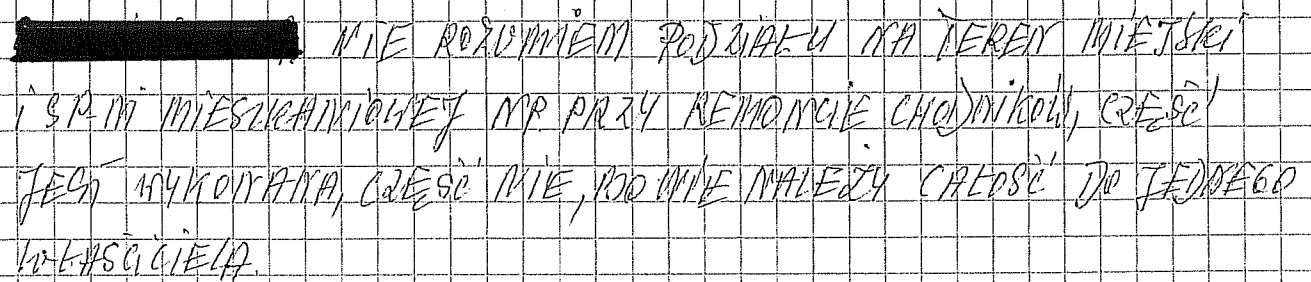 NIE ROZUMIEM PODZIAŁU NA TEREN MIEJSKI
I SP-NI MIESZKANIOWEJ NP. PRZY REMONCIE CHODNIKÓW, CZĘŚĆ
JEST WYKONANA, CZĘŚĆ NIE, BO NIE NALEŻY CAŁOŚĆ DO JEDNEGO
WŁAŚCICIELA.